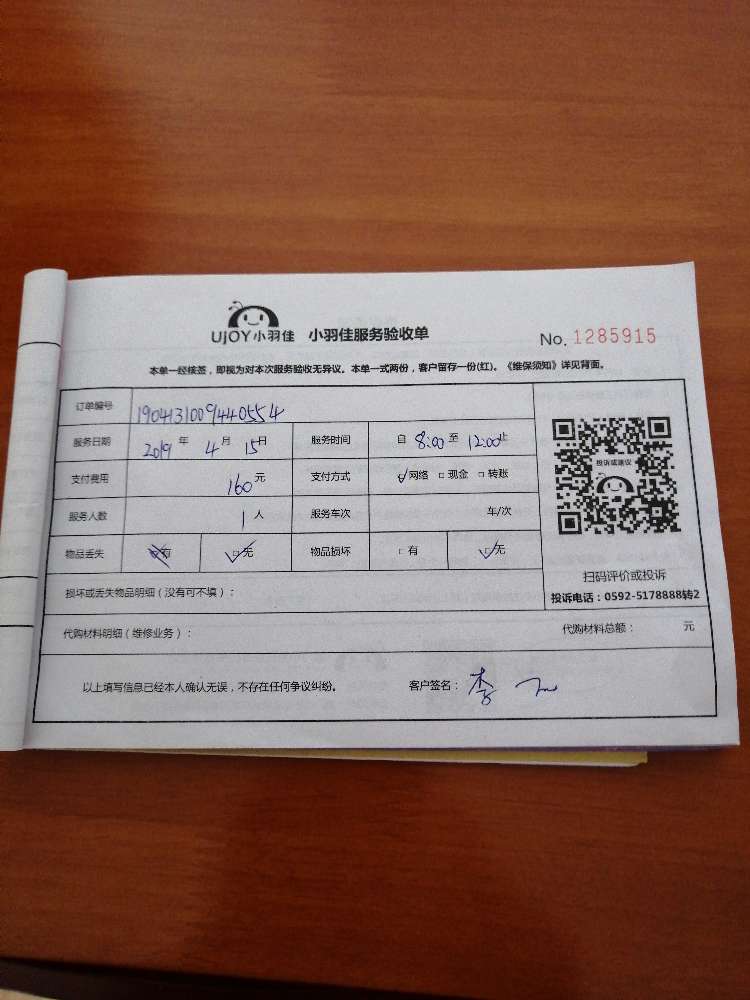 UJOY小羽佳 小羽佳服务验收单 No. 1285915
本单一经核签，即视为对本次服务验收无异议。本单一式两份，客户留存一份(红)。《维保须知》详见背面。
订单编号 1904131009440554
服务日期 2019 年 4 月 15日 服务时间 自 8:00 至 12:00止
支付费用 160 元 支付方式 ☑网络 □现金 □转账
服务人数 1 人 服务车次 车/次
物品丢失 有 ☑无 物品损坏 □有 ☑无
投诉或建议
扫码评价或投诉
投诉电话：0592-5178888转2
损坏或丢失物品明细（没有可不填）：
代购材料明细（维修业务）： 代购材料总额： 元
以上填写信息已经本人确认无误，不存在任何争议纠纷。 客户签名：李